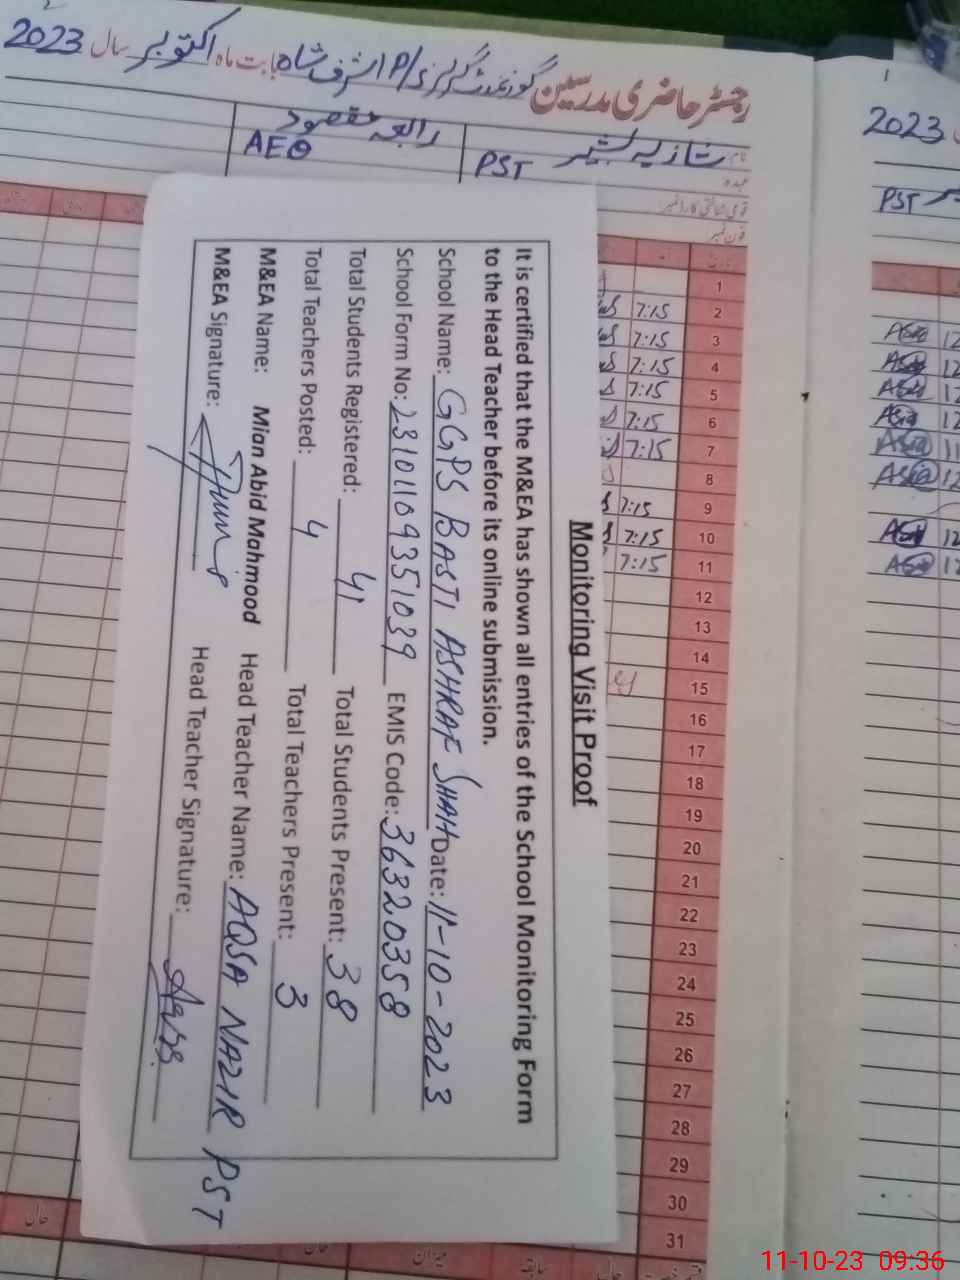 رجسٹر حاضری مدرسین گورنمنٹ گرلز P/ اشرف شاہ بابت ماہ اکتوبر سال 2023
نام شازیہ بشیر
رابعہ مقصود
عہدہ PST
AEO
قومی شناختی کارڈ نمبر
فون نمبر
تاریخ آمد
1
2 7:15
3 7:15
4 7:15
5 7:15
6 7:15
7 7:15
8
9 7:15
10 7:15
11 7:15
12
13
14
15
16
17
18
19
20
21
22
23
24
25
26
27
28
29
30
31
میزان
سابق
حال
2023
PST
Asia 12
Asia 12
Asia 12
Asia 12
Asia 11
Asia 12
Asia 12
Asia 12
Monitoring Visit Proof
It is certified that the M&EA has shown all entries of the School Monitoring Form
to the Head Teacher before its online submission.
School Name: GGPS BASTI ASHRAF SHAH Date: 11-10-2023
School Form No: 23101109351039 EMIS Code: 36320358
Total Students Registered: 41 Total Students Present: 38
Total Teachers Posted: 4 Total Teachers Present: 3
M&EA Name: Mian Abid Mahmood Head Teacher Name: AQSA NAZIR PST
M&EA Signature: Head Teacher Signature: Aqsa
11-10-23 09:36